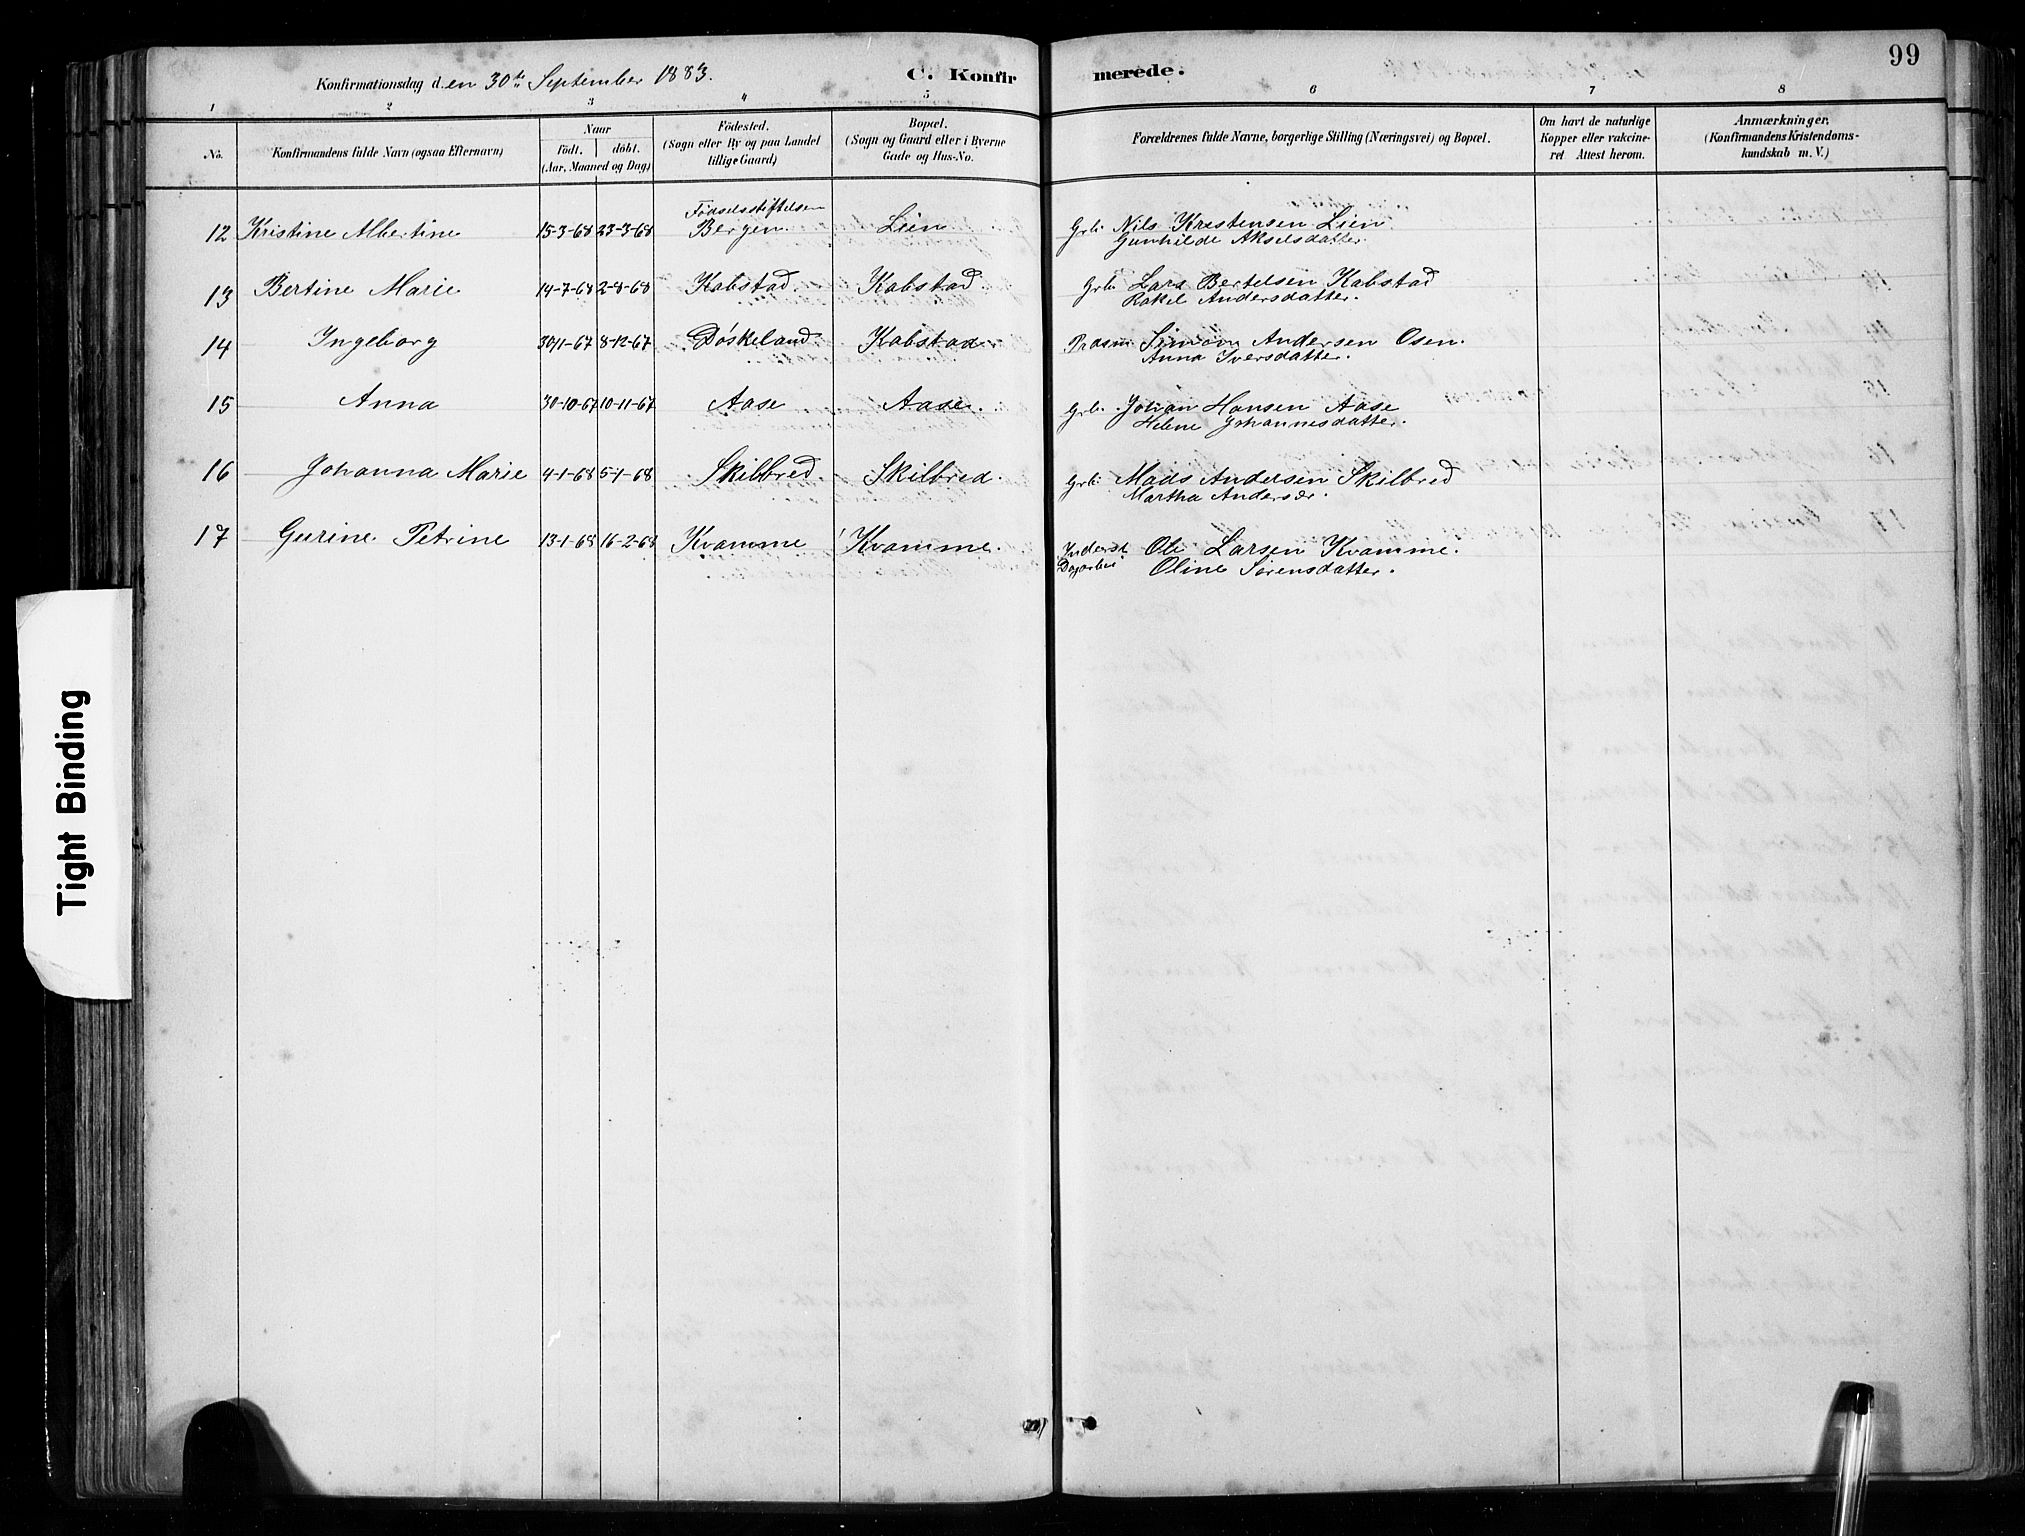 99
Konfirmationsdag den 30te September 1883.
C. Konfirmerede.
1 2 3 4 5 6 7 8
No.
Konfirmandens fulde Navn (ogsaa Efternavn)
Naar
født. døbt.
(Aar, Maaned og Dag)
Födested.
(Sogn eller By og paa Landet
tillige Gaard)
Bopæl.
(Sogn og Gaard eller i Byerne
Gade og Hus-No.
Forældrenes fulde Navne, borgerlige Stilling (Næringsvei) og Bopæl.
Om havt de naturlige
Kopper eller vakcine-
ret Attest herom.
Anmærkninger.
(Konfirmandens Kristendoms-
kundskab m. V.)
Fødselsstiftelsen
12 Kristine Albertine 15-3-68 23-3-68 Bergen Lien Grb. Nils Kristensen Lien
Gunhilde Akselsdatter.
13 Bertine Marie 14-7-68 2-8-68 Kabstad Kabstad Grb. Lars Bertelsen Kabstad
Rakel Andersdatter.
14 Ingeborg 30/1-67 8-12-67 Døskeland Kabstad Simon Andersen Osen.
Anna Iversdatter.
15 Anna 30-10-67 10-11-67 Aase Aase. Grb. Johan Hansen Aase
Helene Johannesdatter.
16 Johanna Marie 4-1-68 5-1-68 Skilbred. Skilbred. Grb. Mads Andersen Skilbred
Martha Andersdr.
17 Gurine Petrine 13-1-68 16-2-68 Kvamme Kvamme. Inderst Ole Larsen Kvamme.
Dagarbei Oline Sørensdatter.
Tight Binding